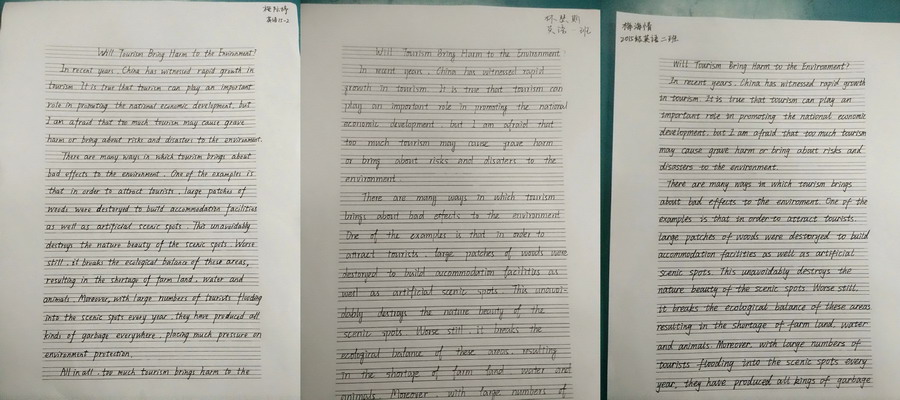 英语15-2
Will Tourism Bring Harm to the Envirnment?
In recent years, China has witnessed rapid growth in
tourism. It is true that tourism can play an important
role in promoting the national economic development, but
I am afraid that too much tourism may cause grave
harm or bring about risks and disasters to the envirnment.
There are many ways in which tourism brings about
bad effects to the environment. One of the examples is
that in order to attract tourists, large patches of
woods were destoryed to build accommodation facilities
as well as artificial scenic spots. This unavoidably
destroys the nature beauty of the scenic spots. Worse
still, it breaks the ecological balance of these areas,
resulting in the shortage of farm land, water and
animals. Moreover, with large numbers of tourists flooding
into the scenic spots every year, they have produced all
kinds of garbage everywhere, placing much pressure on
environment protection.
All in all, too much tourism brings harm to the
英语一班
Will Tourism Bring Harm to the Environment
In recent years, China has witnessed rapid
growth in tourism. It is true that tourism can
play an important role in promoting the national
economic development, but I am afraid that
too much tourism may cause grave harm
or bring about risks and disaters to the
environment.
There are many ways in which tourism
brings about bad effects to the environment
One of the examples is that in order to
attract tourists, large patches of woods were
destoryed to build accommodation facilities as
well as artificial scenic spots. This unavoi-
dably destroys the nature beauty of the
scenic spots. Worse still, it breaks the
ecological balance of these areas, resulting
in the shortage of farm land water and
animals. Moreover, with large numbers of
梅海情
2015级英语二班
Will Tourism Bring Harm to the Environment?
In recent years, China has witnessed rapid growth
in tourism. It is true that tourism can play an
important role in promoting the national economic
development, but I am afraid that too much tourism
may cause grave harm or bring about risks and
disasters to the environment.
There are many ways in which tourism brings
about bad effects to the enviroment. One of the
examples is that in order to attract tourists,
large patches of woods were destoryed to build
accommodation facilities as well as artificial
scenic spots. This unavoidably destroys the
nature beauty of the scenic spots. Worse still,
it breaks the ecological balance of these areas
resulting in the shortage of farm land, water
and animals. Moreover, with large numbers of
tourists flooding into the scenic spots every
year, they have produced all kings of garbage